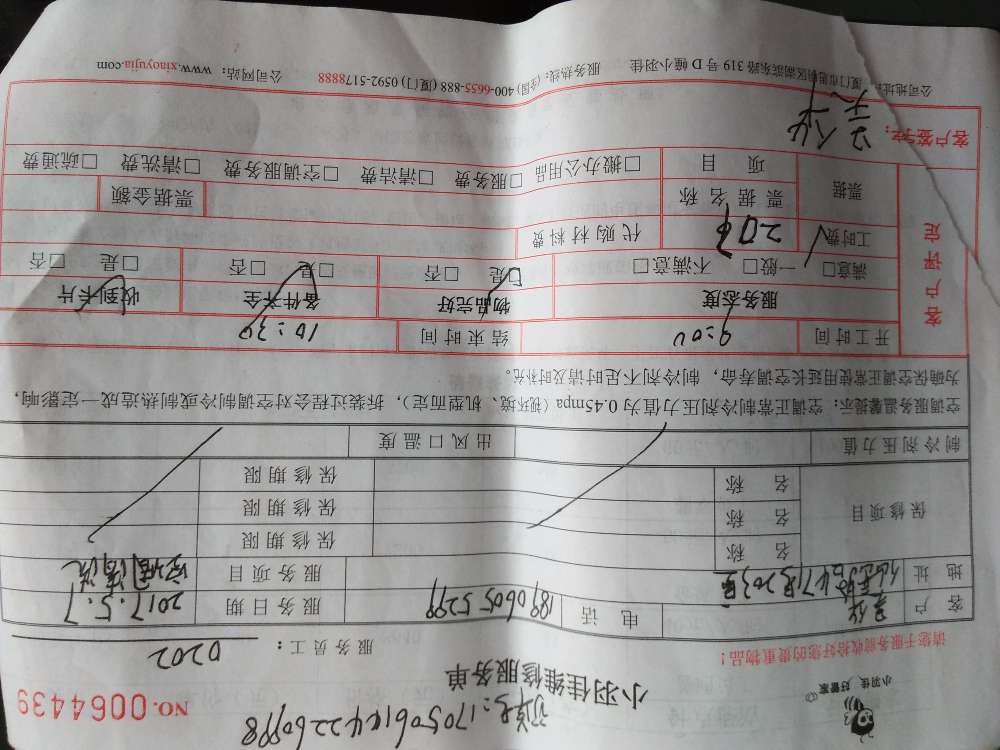 订单号:170506144226098
小羽佳 好管家
小羽佳维修服务单
NO.0064439
请您于服务前收拾好您的贵重物品!
服务员工: 0202
客户 电话 18906055299 服务日期 2017.5.7
地址 服务项目 空调清洗
保修项目 名称 保修期限
名称 保修期限
名称 保修期限
制冷剂压力值 出风口温度
空调服务温馨提示:空调正常制冷剂压力值为0.45mpa(视环境、机型而定),拆装过程会对空调制冷或制热造成一定影响,
为确保空调正常使用延长空调寿命,制冷剂不足时请及时补充。
开工时间 9:00 结束时间 10:30
客户评定
服务态度 物品完好 备件齐全 收到卡片
满意□ 一般□ 不满意□ □是 □否 □是 □否 □是 □否
工时费 206 代购材料费
票据 票据名称 票据金额
项目 □搬办公用品 □服务费 □清洁费 □空调服务费 □清洗费 □疏通费
客户签字:
公司地址:厦门市思明区湖滨东路319号D幢小羽佳 服务热线:(全国) 400-6655-888 (厦门) 0592-5178888 公司网站:www.xiaoyujia.com